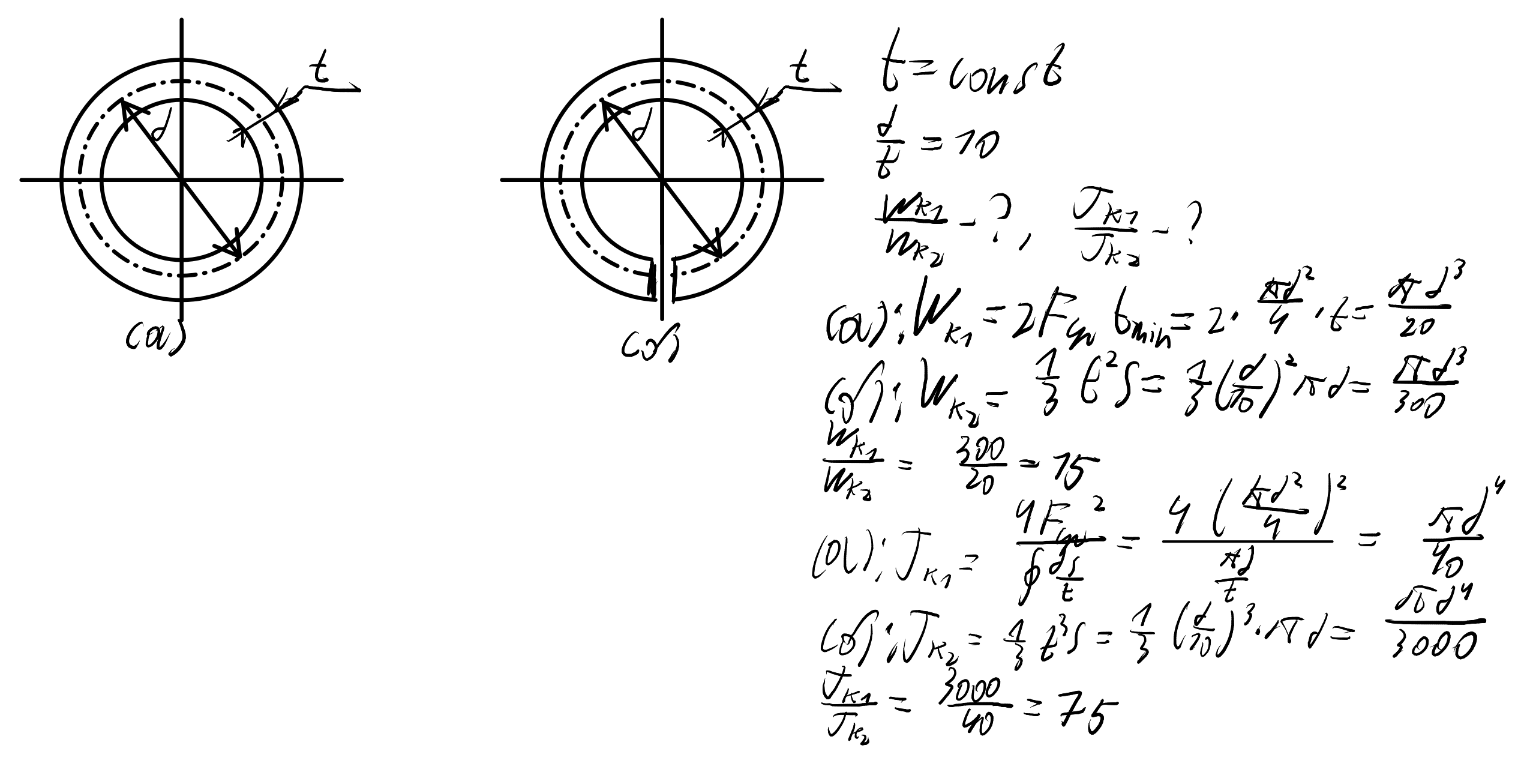 t
d
(а)
t
d
(б)
t = const
d/t = 10
Wк1/Wк2 - ?, Jк1/Jк2 - ?
(а): Wк1 = 2Fср tmin = 2 · πd²/4 · t = πd³/20
(б): Wк2 = 1/3 t²S = 1/3 (d/10)² πd = πd³/300
Wк1/Wк2 = 300/20 = 15
(а): Jк1 = 4Fср²/∮ds/t = 4(πd²/4)²/(πd/t) = πd⁴/40
(б): Jк2 = 1/3 t³S = 1/3 (d/10)³ · πd = πd⁴/3000
Jк1/Jк2 = 3000/40 = 75